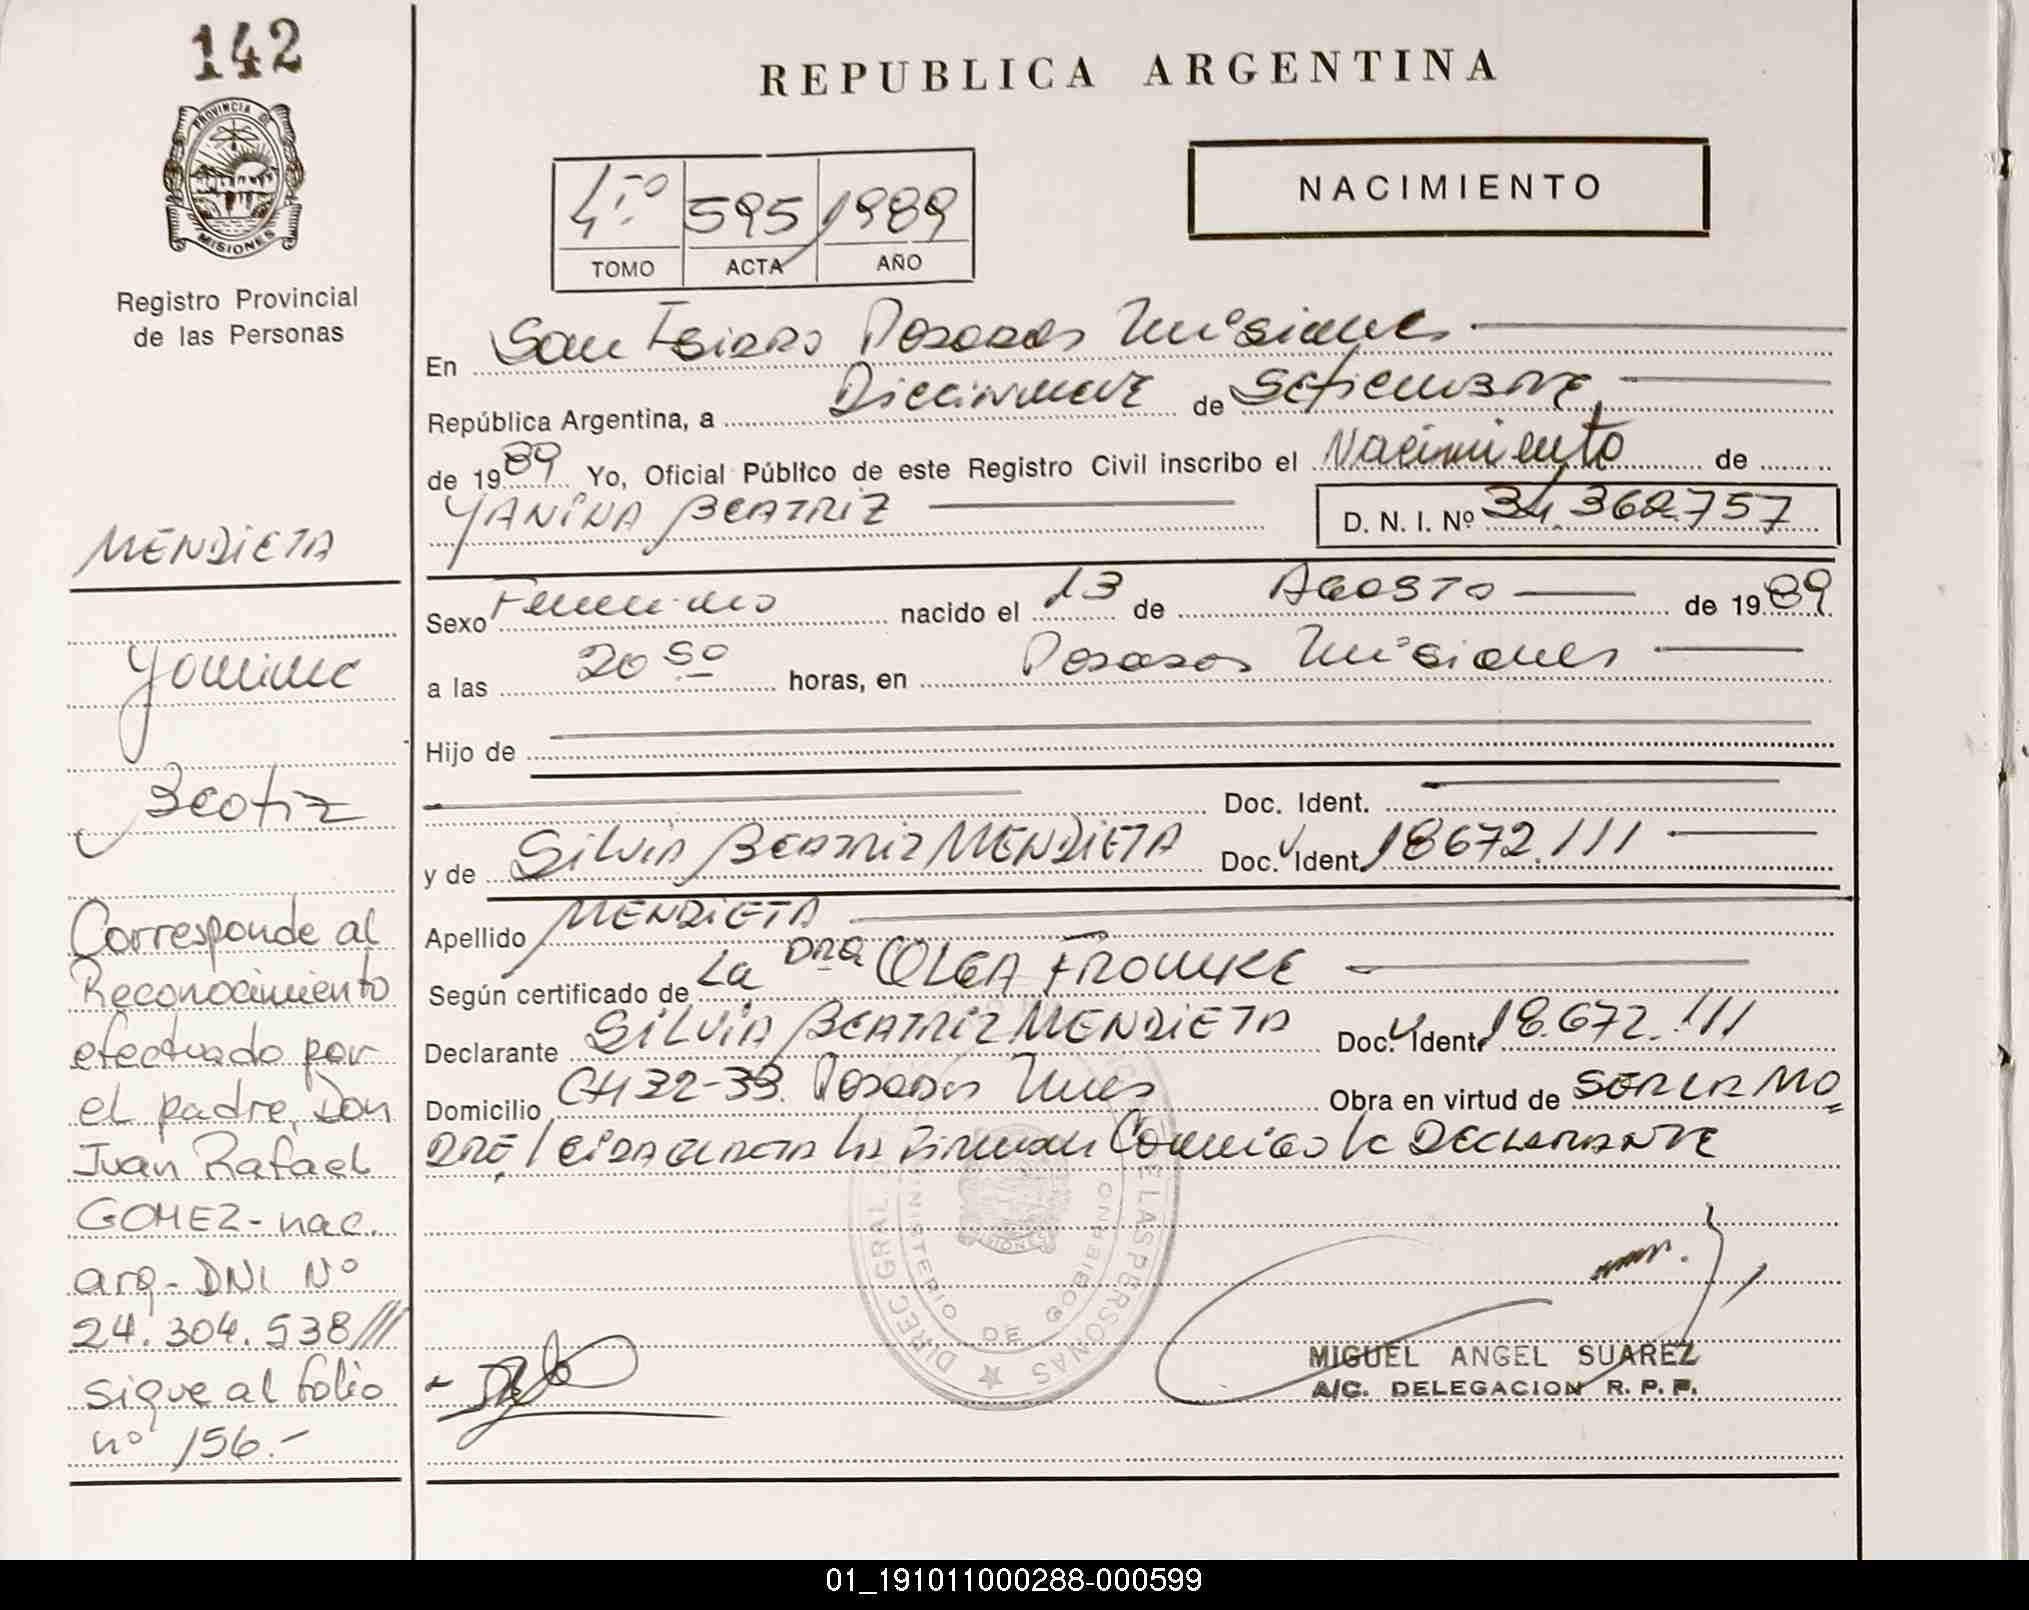 142
PROVINCIA DE
MISIONES
Registro Provincial
de las Personas
REPUBLICA ARGENTINA
NACIMIENTO
4to 595 1989
TOMO ACTA AÑO
En San Isidro Posadas Misiones
República Argentina, a Diecinueve de Setiembre
de 1989 Yo, Oficial Público de este Registro Civil inscribo el Nacimiento de
YANINA BEATRIZ D. N. I. Nº 34.362.757
Sexo Femenino nacido el 13 de AGOSTO de 1989
a las 20 50 horas, en Posadas Misiones
Hijo de
Doc. Ident.
y de Silvia BEATRIZ MENDIETA Doc. Ident. 18672.111
Apellido MENDIETA
Según certificado de La Dra OLGA FROMKE
Declarante SILVIA BEATRIZ MENDIETA Doc. Ident. 18.672.111
Domicilio CH 32-33 Posadas Mnes Obra en virtud de SER LA MA
DRE / Leida el acta la firman Conmigo la DECLARANTE
MIGUEL ANGEL SUAREZ
A/C. DELEGACION R. P. P.
MENDIETA
Yanina
Beatriz
Corresponde al
Reconocimiento
efectuado por
el padre, Don
Juan Rafael
GOMEZ - nac.
arg - DNI Nº
24.304.538///
sigue al folio
nº 156.-
DIREC GRAL DE LAS PERSONAS
MINISTERIO DE GOBIERNO
01_191011000288-000599